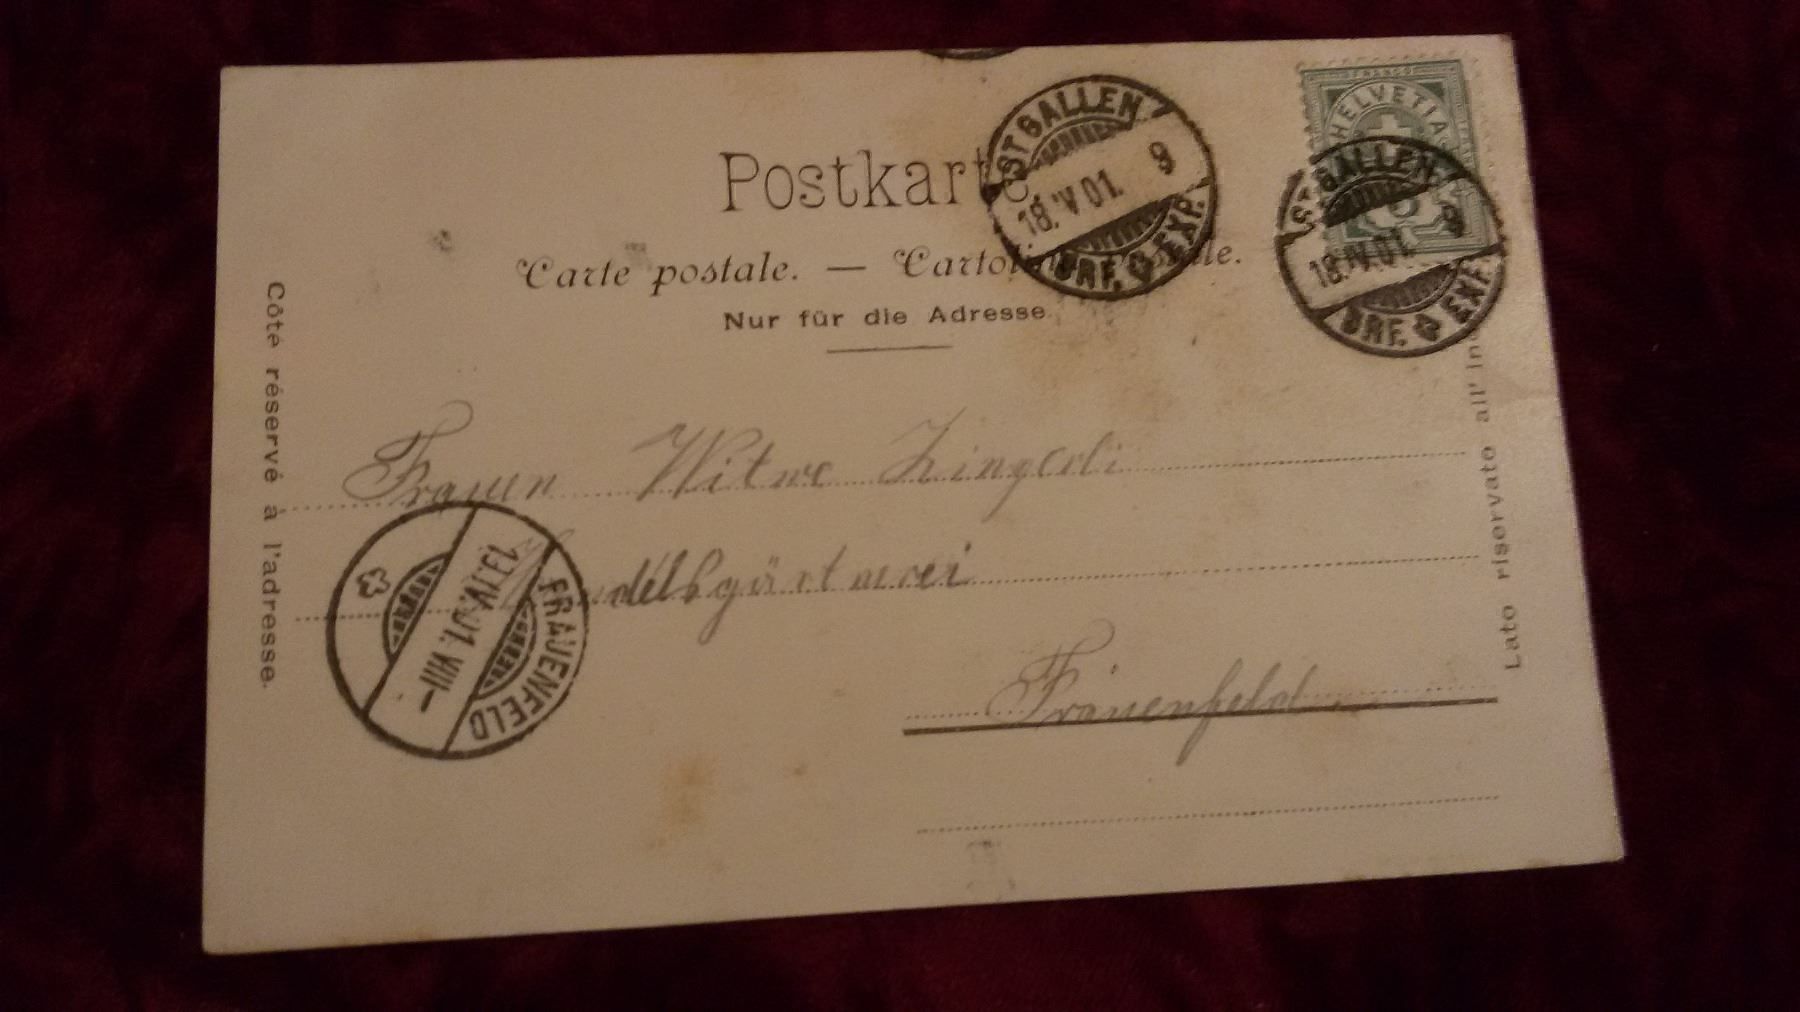 Postkarte
Carte postale. — Cartolina postale.
Nur für die Adresse
Côté réservé à l'adresse.
Lato riservato all' in
FRANCO
HELVETIA
5
ST GALLEN
18. IV 01. 9
BRF. EXP.
ST. GALLEN
18. IV. 01. 9
BRF. EXP.
Frauen Witwe Zingerli
Handelsgärtnerei
Frauenfeld
FRAUENFELD
IV.01. VIII–